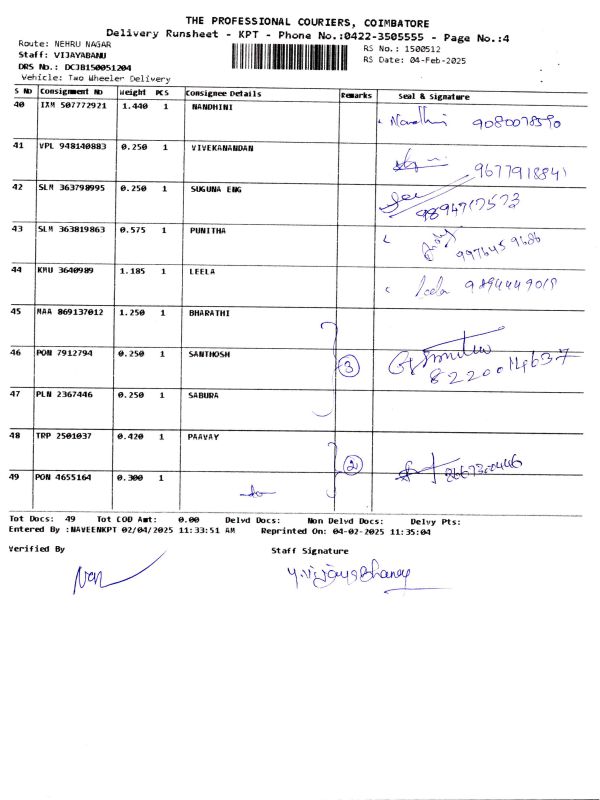 THE PROFESSIONAL COURIERS, COIMBATORE
Delivery Runsheet - KPT - Phone No.:0422-3505555 - Page No.:4
Route: NEHRU NAGAR
RS No.: 1500512
Staff: VIJAYABANU
RS Date: 04-Feb-2025
DRS No.: DCJB150051204
Vehicle: Two Wheeler Delivery
S No Consignment No Weight PCS Consignee Details Remarks Seal & Signature
40 IXM 507772921 1.440 1 NANDHINI Nandhini 9080078590
41 VPL 948140883 0.250 1 VIVEKANANDAN 9677918841
42 SLM 363798995 0.250 1 SUGUNA ENG 9894717573
43 SLM 363819863 0.575 1 PUNITHA 9976459686
44 KMU 3640989 1.185 1 LEELA Leela 9894449018
45 MAA 869137012 1.250 1 BHARATHI
46 PON 7912794 0.250 1 SANTHOSH 3 8220014637
47 PLN 2367446 0.250 1 SABURA
48 TRP 2501037 0.420 1 PAAVAY 2
49 PON 4655164 0.300 1
Tot Docs: 49 Tot COD Amt: 0.00 Delvd Docs: Non Delvd Docs: Delvy Pts:
Entered By :NAVEENKPT 02/04/2025 11:33:51 AM Reprinted On: 04-02-2025 11:35:04
Verified By Staff Signature